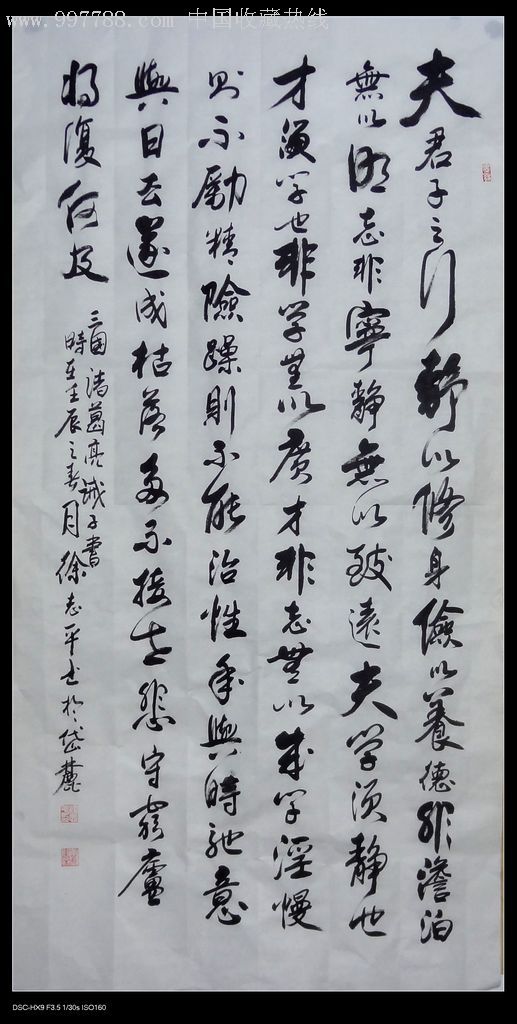 www.997788.com 中国收藏热线
夫君子之行靜以修身儉以養德非澹泊
無以明志非寧靜無以致遠夫学須靜也
才須学也非学無以廣才非志無以成学淫慢
則不勵精險躁則不能治性年與時馳意
與日去遂成枯落多不接世悲守窮廬
將復何及
三国諸葛亮誡子書
時在壬辰之春月徐志平书於岱麓
DSC-HX9 F3.5 1/30s ISO160